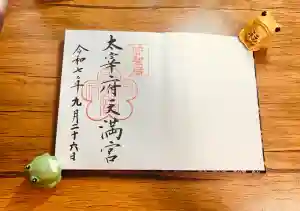 太宰府天満宮
令和七年九月二十六日